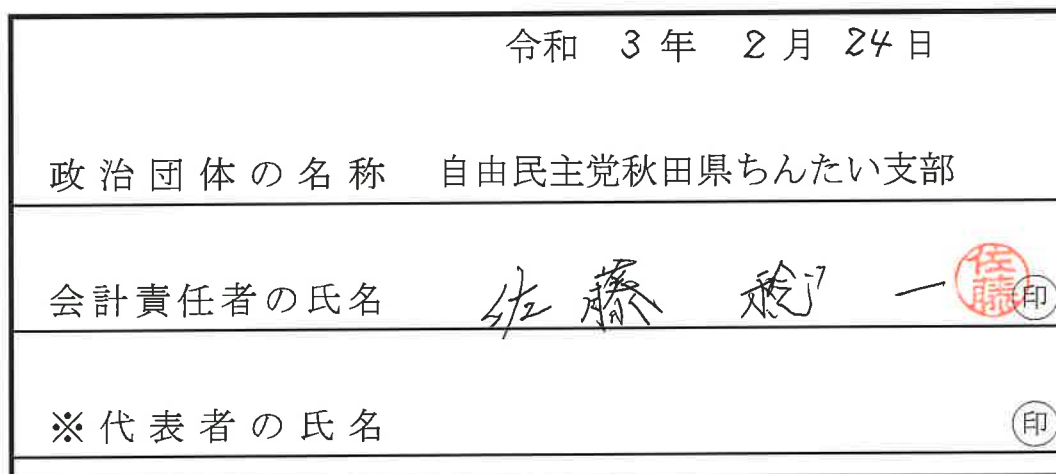 令和 3 年 2 月 24 日
政治団体の名称 自由民主党秋田県ちんたい支部
会計責任者の氏名 佐藤 一 佐藤 印
※代表者の氏名 印